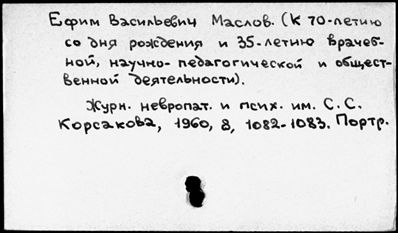 Ефим Васильевич Маслов. (К 70-летию
со дня рождения и 35-летию врачеб-
ной, научно-педагогической и общест-
венной деятельности).
Журн. невропат. и псих. им. С.С.
Корсакова, 1960, 8, 1082-1083. Портр.